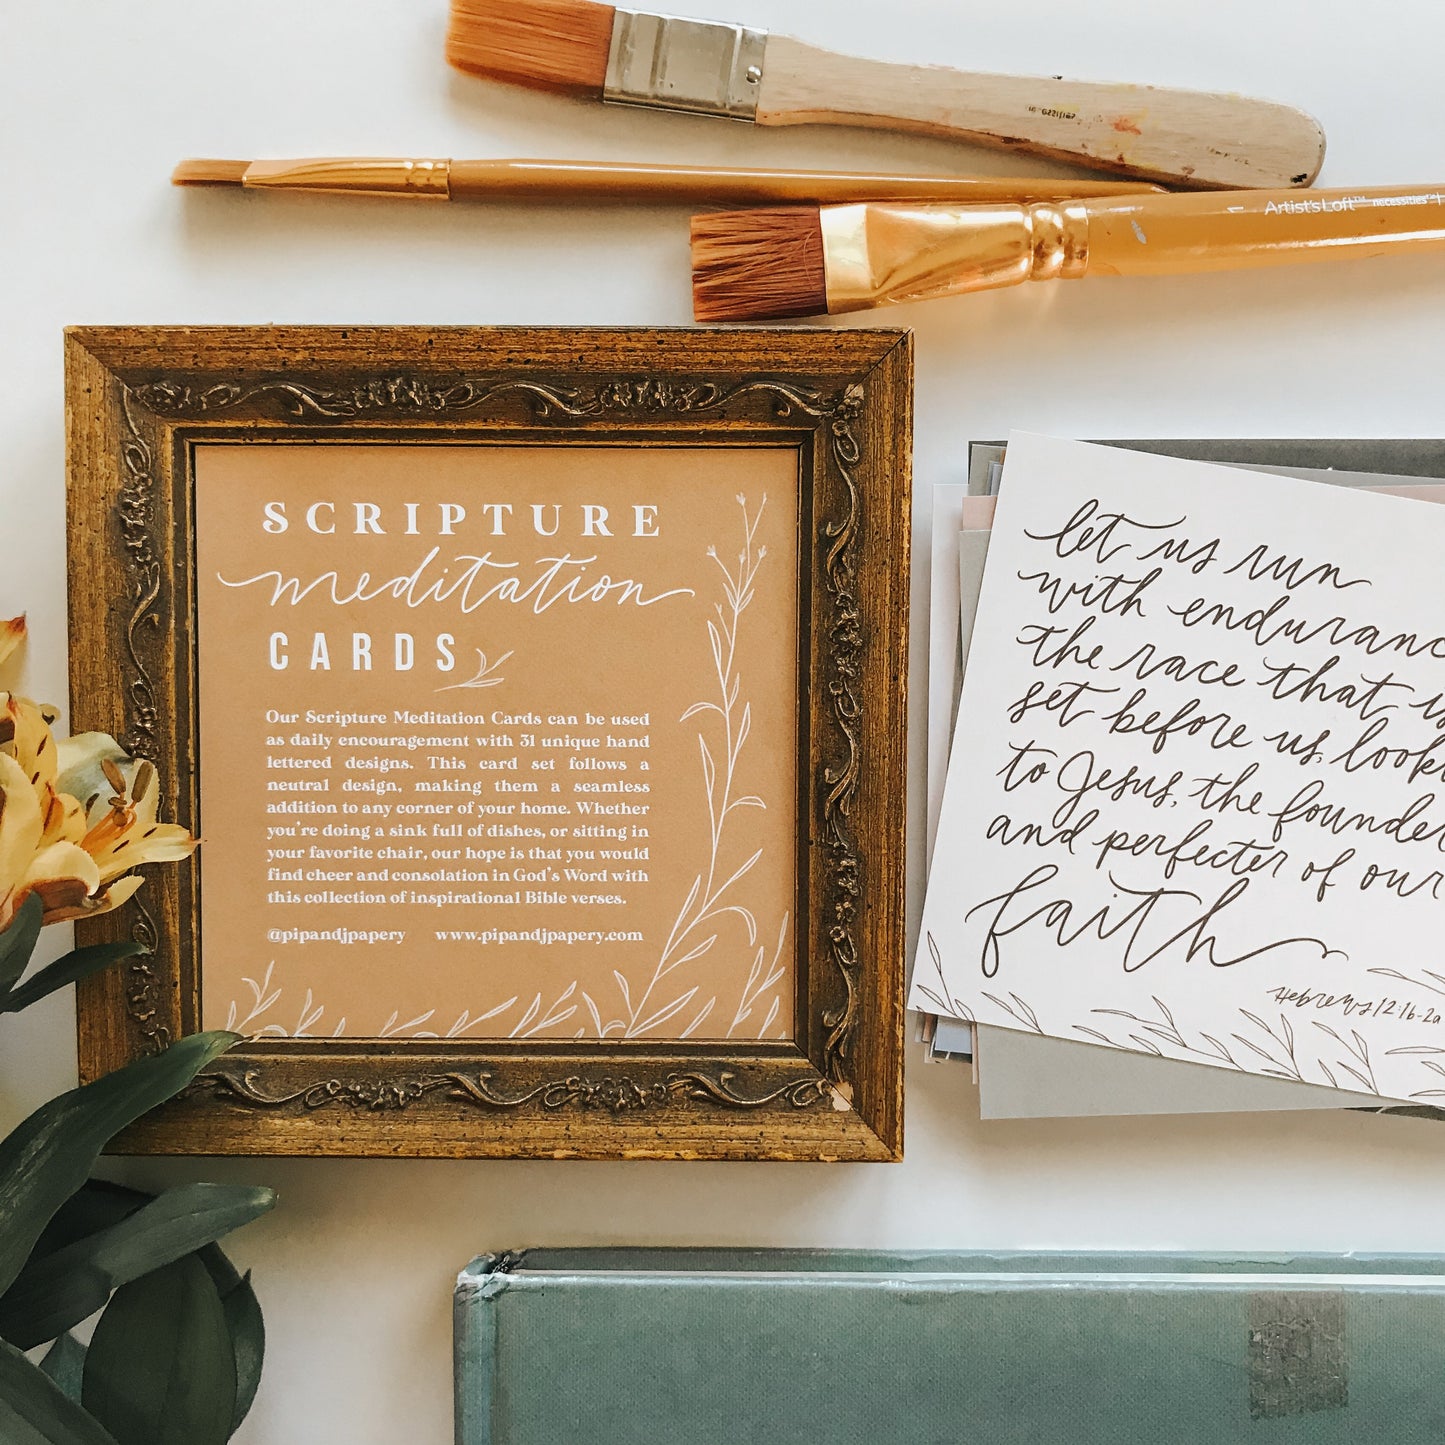 Artist's Loft™ necessities™
SCRIPTURE
meditation
CARDS
Our Scripture Meditation Cards can be used
as daily encouragement with 31 unique hand
lettered designs. This card set follows a
neutral design, making them a seamless
addition to any corner of your home. Whether
you're doing a sink full of dishes, or sitting in
your favorite chair, our hope is that you would
find cheer and consolation in God's Word with
this collection of inspirational Bible verses.
@pipandjpapery www.pipandjpapery.com
let us run
with enduranc
the race that is
set before us, look
to Jesus, the founder
and perfecter of our
faith
Hebrews 12:1b-2a